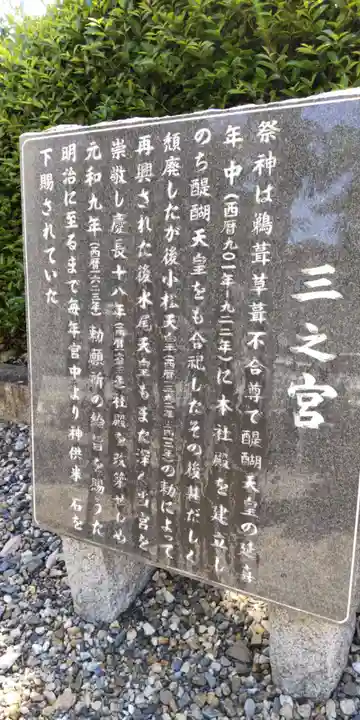 三之宮
祭神は鵜葺草葺不合尊で醍醐天皇の延喜
年中(西暦九〇一年―九二二年)に本社殿を建立し
のち醍醐天皇をも合祀したその後甚だしく
頽廃したが後小松天皇(西暦一三九二年―一四一二年)の勅によって
再興された後水尾天皇もまた深く当宮を
崇敬し慶長十八年(西暦一六一三年)社殿を改築せしめ
元和九年(西暦一六二三年)勅願所の綸旨を賜うた
明治に至るまで毎年宮中より神供米一石を
下賜されていた